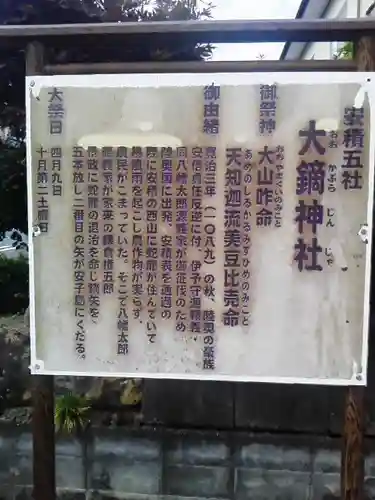 安積五社
大鏑神社
おお かぶら じん じゃ
御祭神
大山咋命
おおやまぐいのみこと
天知迦流美豆比売命
あめのしるかるみずひめのみこと
御由緒
寛治三年(一〇八九)の秋、陸奥の豪族
安倍貞任反逆に付、伊予守源頼義・
同八幡太郎源義家が御征伐のため
陸奥国に出発、安積を通過の
際に安積の西山に蛇龍が住んでいて
暴積雨を起こし農作物が実らず
農民がこまっていた。そこで八幡太郎
源義家が家来の鎌倉権五郎
景政に蛇龍の退治を命じ鏑矢を
五本放し二番目の矢が安子島にくだる。
大祭日
四月九日
十月第二土曜日